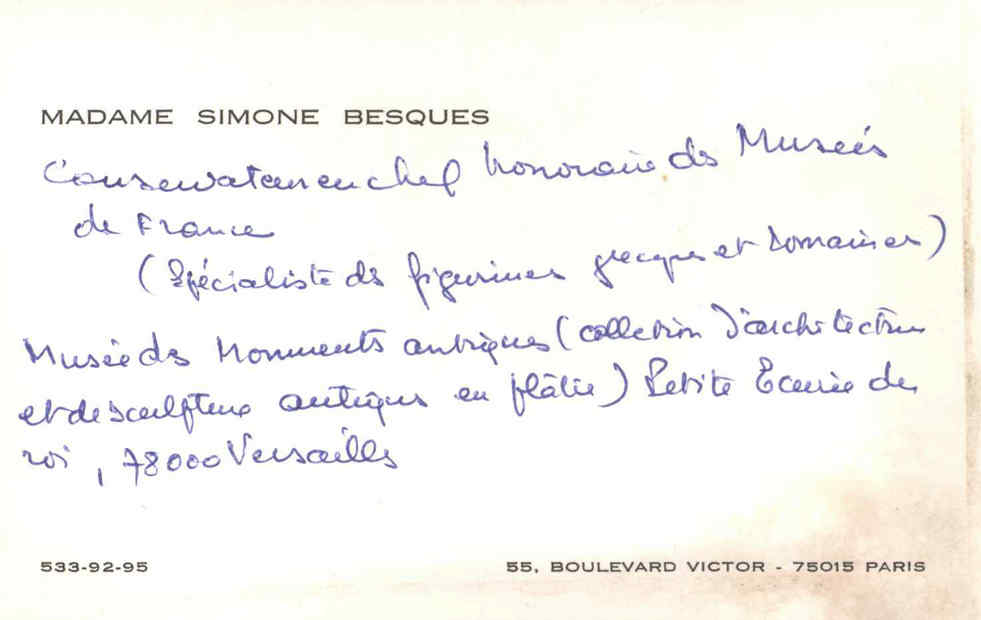 MADAME SIMONE BESQUES
Conservateur en chef honoraire des Musées
de France
(Spécialiste des figurines grecques et romaines)
Musée des Monuments antiques (collection d'architecture
et de sculpture antiques en plâtre) Petite Ecurie du
roi, 78000 Versailles
533-92-95
55, BOULEVARD VICTOR - 75015 PARIS